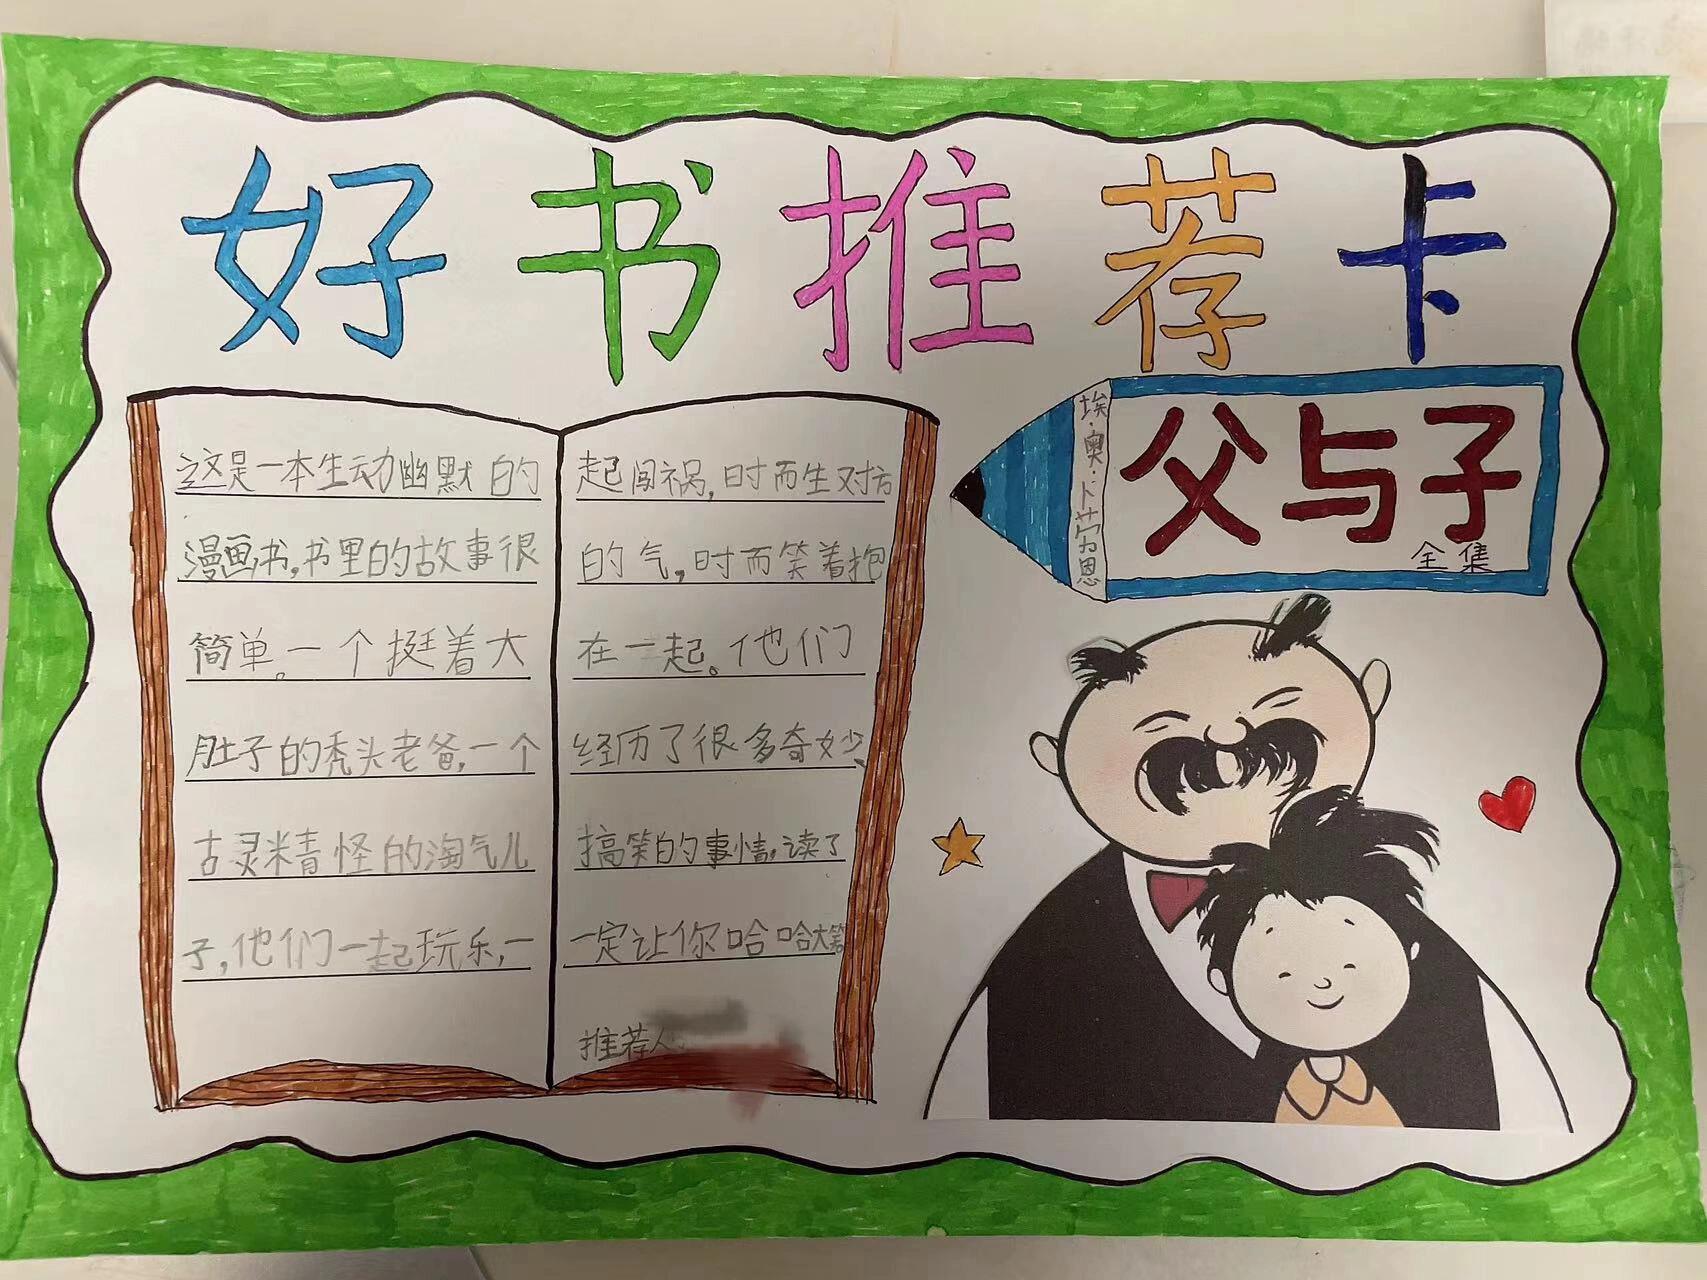 好书推荐卡
这是一本生动幽默的
漫画书,书里的故事很
简单。一个挺着大
肚子的秃头老爸,一个
古灵精怪的淘气儿
子,他们一起玩乐,一
起闯祸,时而生对方
的气,时而笑着抱
在一起。他们
经历了很多奇妙、
搞笑的事情,读了
一定让你哈哈大笑
推荐人
埃·奥·卜劳恩
父与子
全集